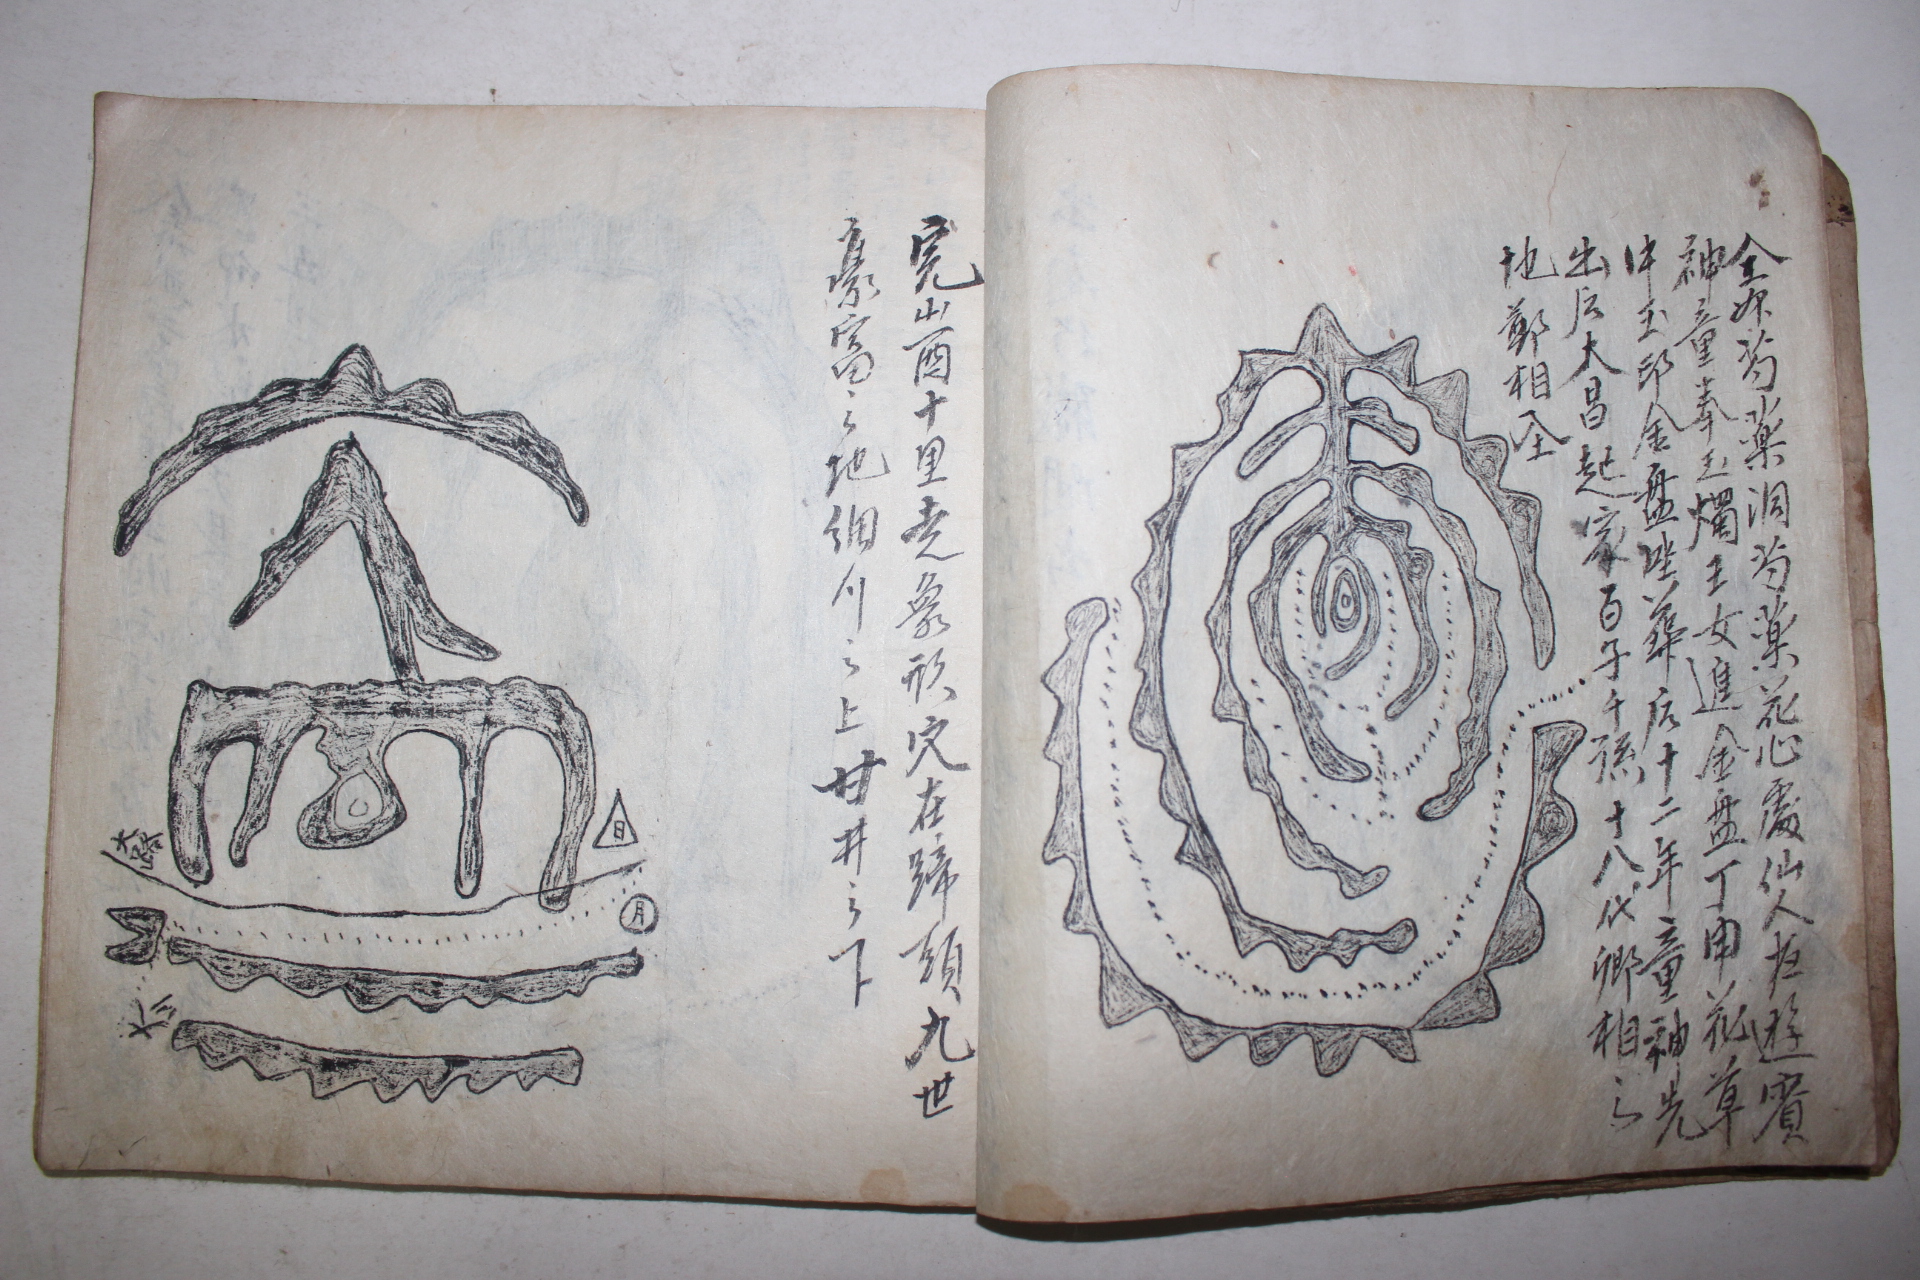 芍藥洞芍藥花心處仙人在遊賓
神童奉玉燭玉女進金盤丁甲花草
中玉印金盤 葬后十二年童神先
出后大昌起家百子千孫十八代卿相之
地鄭相
完山酉十里 象形穴在蹄頭九世
豪富之地細川之上甘井之下
日
月